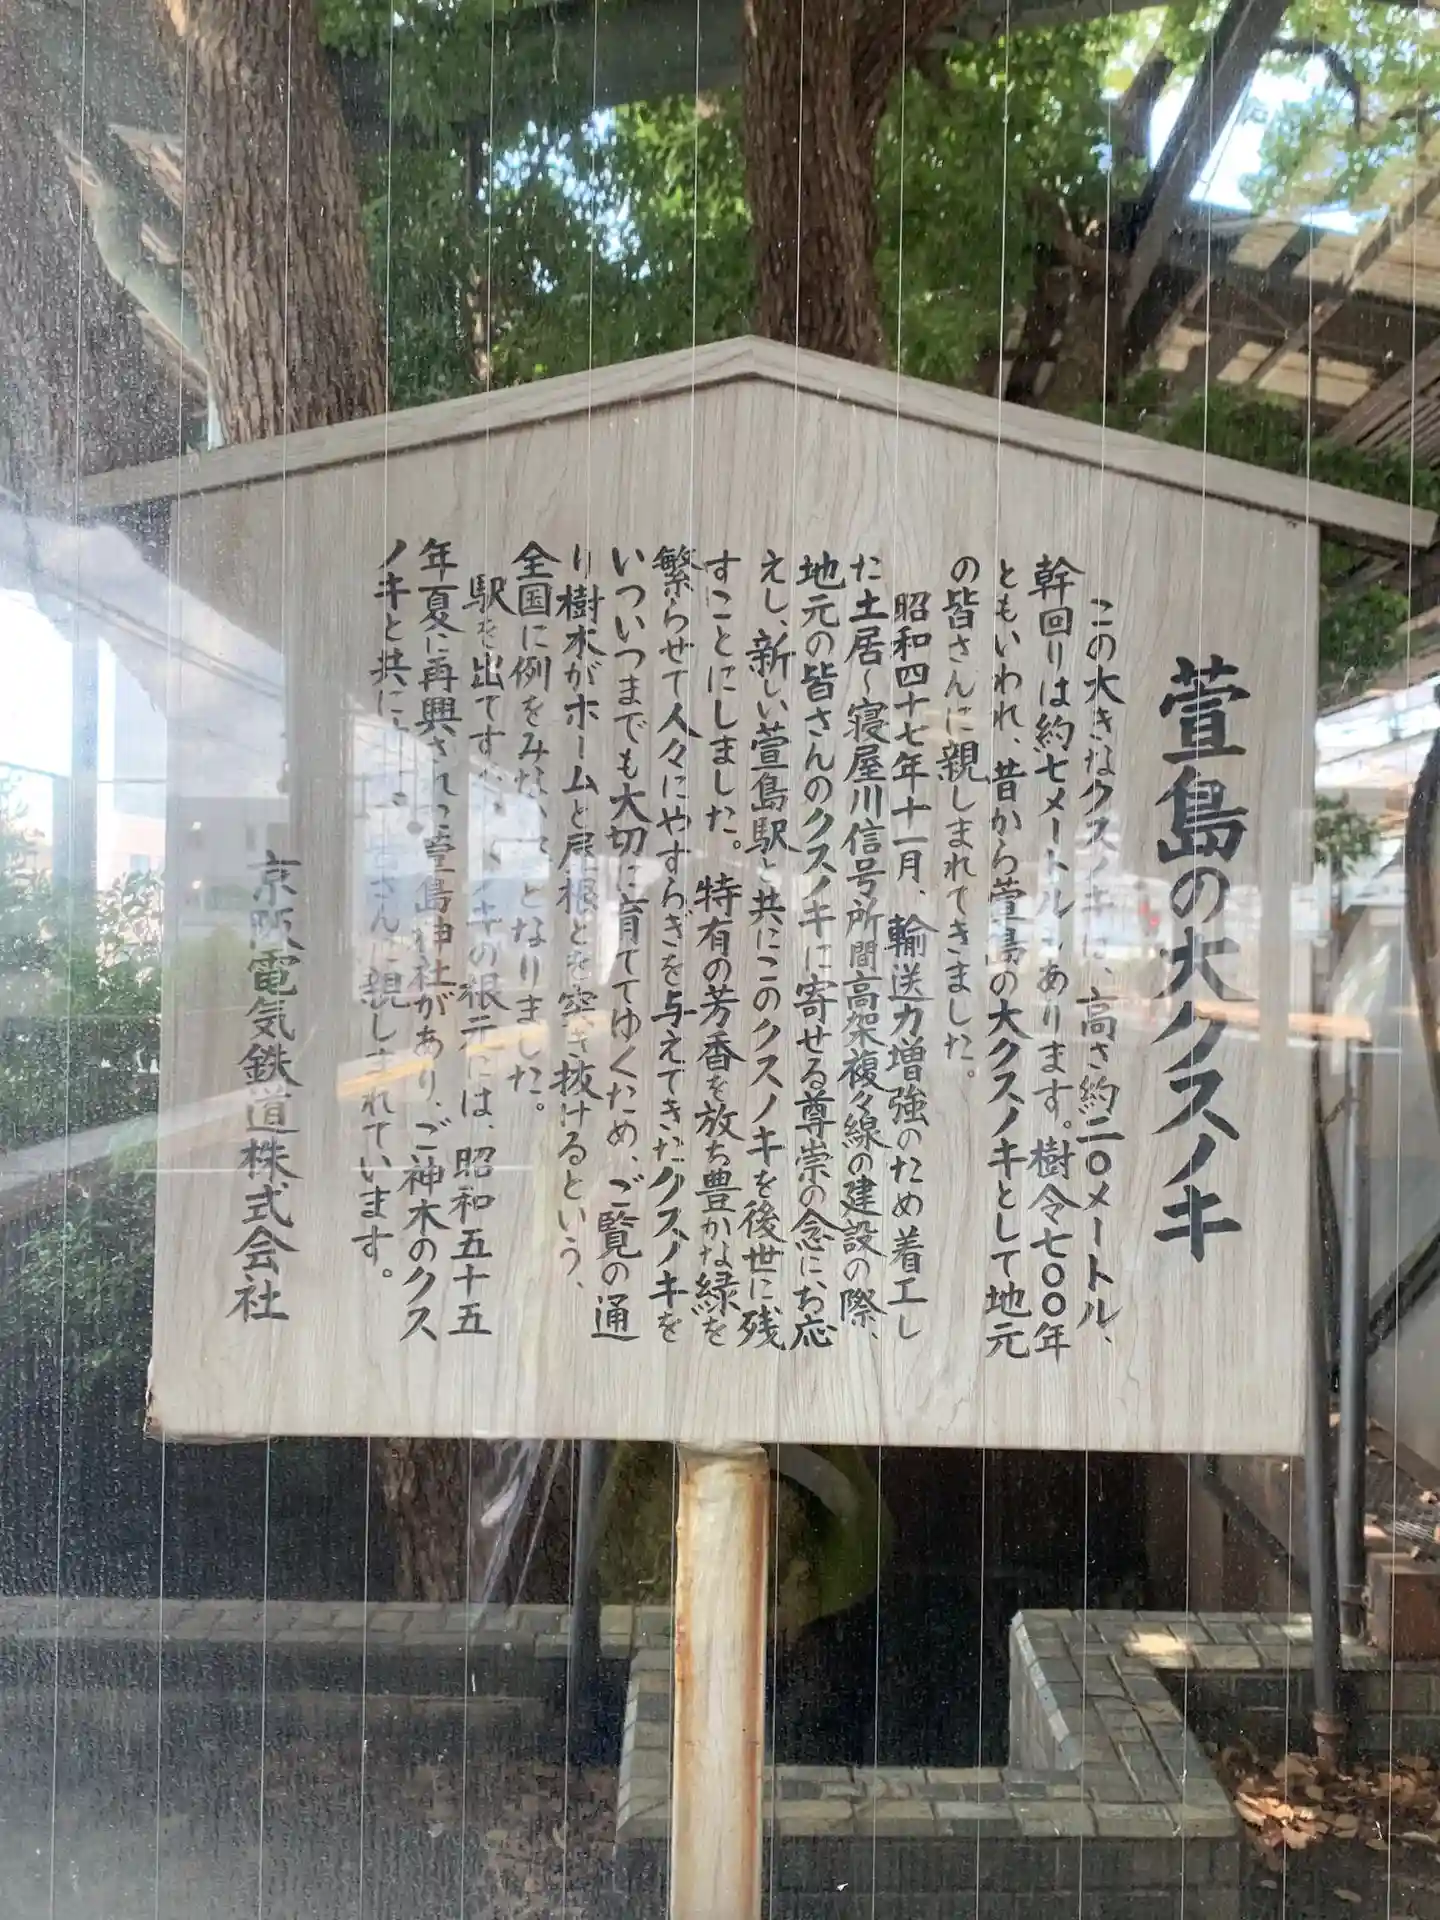 萱島の大クスノキ
この大きなクスノキは、高さ約二〇メートル、
幹回りは約七メートルもあります。樹令七〇〇年
ともいわれ、昔から萱島の大クスノキとして地元
の皆さんに親しまれてきました。
昭和四十七年十一月、輸送力増強のため着工し
た土居〜寝屋川信号所間高架複々線の建設の際、
地元の皆さんのクスノキに寄せる尊崇の念にお応
えし、新しい萱島駅と共にこのクスノキを後世に残
すことにしました。特有の芳香を放ち豊かな緑を
繁らせて人々にやすらぎを与えてきたクスノキを
いついつまでも大切に育ててゆくため、ご覧の通
り樹木がホームと屋根とを突き抜けるという、
全国に例をみないことなりました。
駅を出てすノキの根元には、昭和五十五
年夏に再興された萱島神社があり、ご神木のクス
ノキと共に皆さんに親しまれています。
京阪電気鉄道株式会社